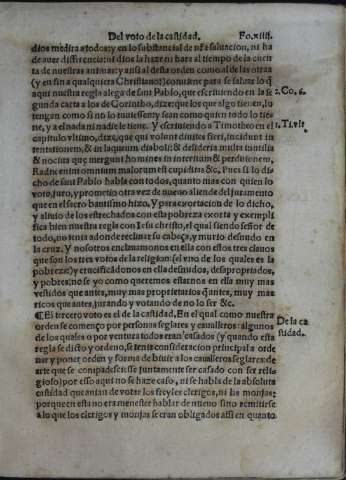 Del voto de la castidad. Fo.xiiij.
dios medira a todos: y en lo substancial de nr̃a saluacion, ni ha
de auer differencia: ni dios la haze ni hara al tiempo de la cuen
ta de nuestras animas: y ansi al desta orden como al de las otras
(y en fin a qualquiera Christiano) conuiene para se saluar lo q̃
aqui nuestra regla alega de sant Pablo, que escriuiendo en la se
gunda carta a los de Corintho, dize: que los que algo tienen, lo
tengan como si no lo tuuiessen: y sean como quien todo lo tie
ne, y a el nada ni nadie le tiene. Y escriuiendo a Timotheo en el
capitulo vltimo, dize, que qui volunt diuites fieri, incidunt in
tentationem, & in laqueum diaboli: & desideria multa inutilia
& nociua que mergunt homines in interitum & perditionem,
Radix enim omnium malorum est cupiditas &c. Pues si lo di
cho de sant Pablo habla con todos, quanto mas con quien lo
voto, juro, y prometio otra vez de nueuo aliende del juramento
que en el sacro baptismo hizo. Y para exortacion de lo dicho,
y aliuio de los estrechados con esta pobreza exorta y exempli
fica bien nuestra regla con Iesu christo, el qual siendo señor de
todo, no tenia adonde reclinar su cabeça, y murio desnudo en
la cruz. Y nosotros enclauemonos en ella con estos tres clauos
que son los tres votos de la religion: (el vno de los quales es la
pobreza) y crucificãdonos en ella desnudos, desapropriados,
y pobres: no se yo como queremos estarnos en ella muy mas
vestidos que antes, muy mas proprietarios q̃ antes, muy mas
ricos que antes, jurando y votando de no lo ser &c.
¶ El tercero voto es el de la castidad. En el qual como nuestra
orden se començo por personas seglares y caualleros: algunos
de los quales o por ventura todos eran casados (y quando esta
regla se dicto y ordeno, se tenia consideracion principal a orde
nar y poner orden y forma de biuir a los caualleros seglares: de
arte que se compadeciesse juntamente ser casado con ser reli
gioso) por esso aqui no se haze caso, ni se habla de la absoluta
castidad que auian de votar los freyles clerigos, ni las monjas:
porque en esta no era menester hablar de nueuo sino remitirse
a lo que los clerigos y monjas se eran obligados assi en quanto
2. Co. 6.
1. Ti. vlt
De la ca
stidad.